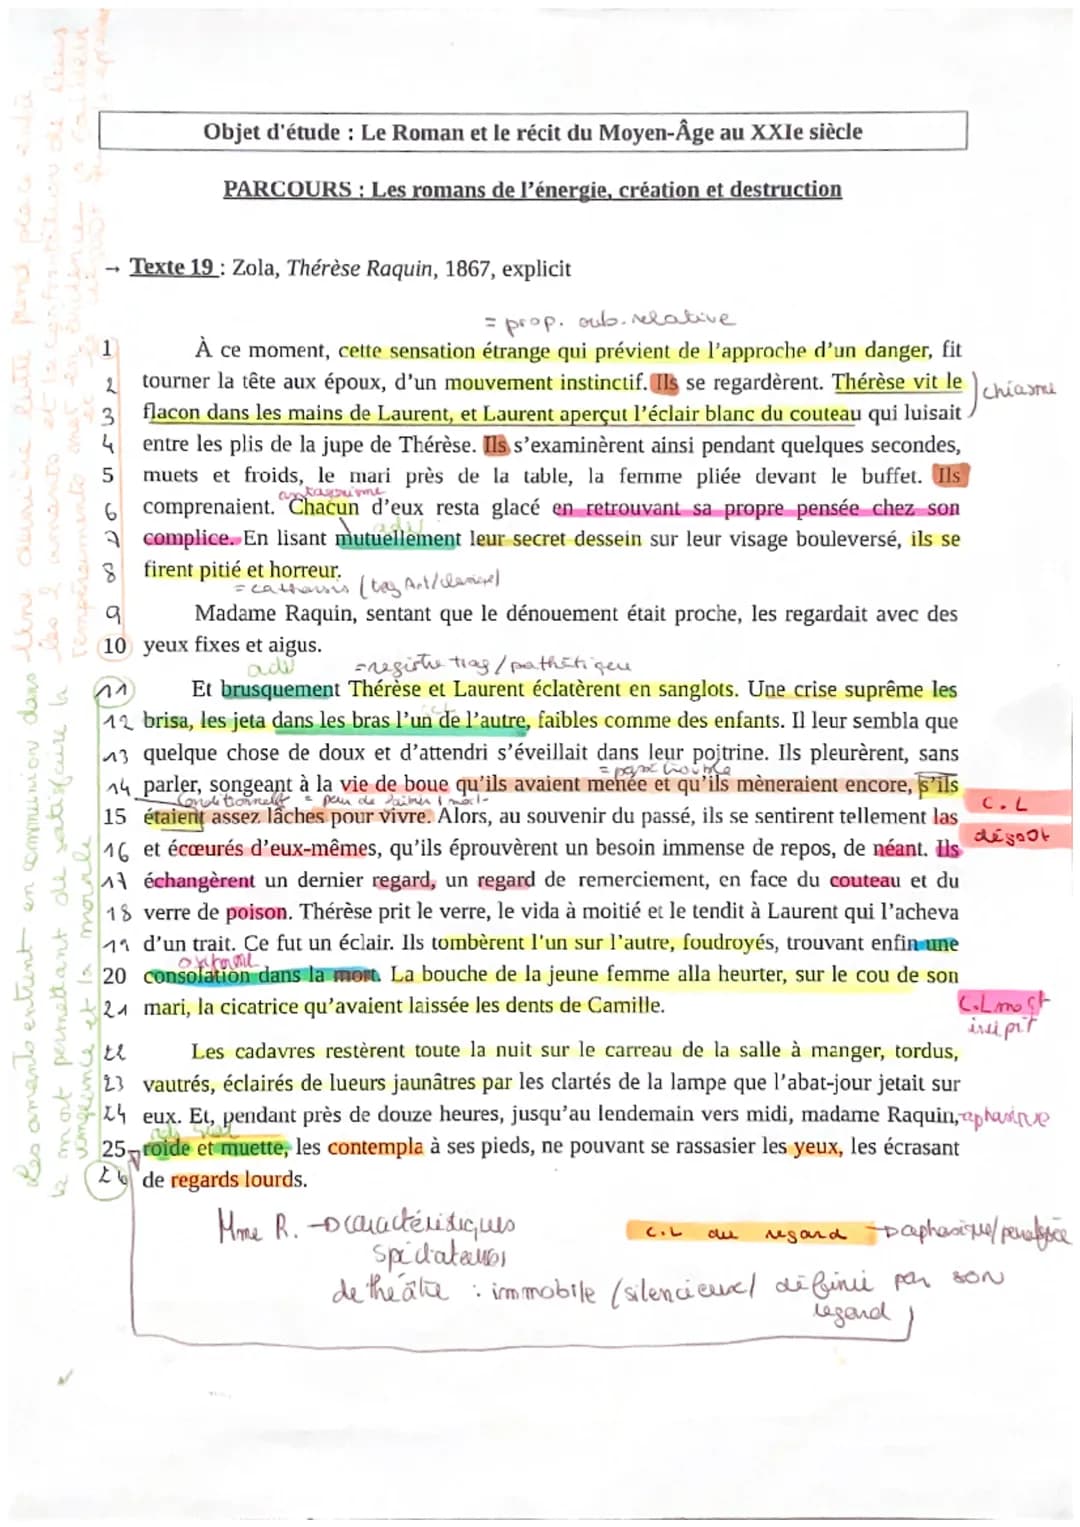 Objet d'étude : Le Roman et le récit du Moyen-Âge au XXIe siècle
PARCOURS : Les romans de l'énergie, création et destruction
→ Texte 19 : Zola, Thérèse Raquin, 1867, explicit
= prop. sub. relative
1 À ce moment, cette sensation étrange qui prévient de l'approche d'un danger, fit
2 tourner la tête aux époux, d'un mouvement instinctif. Ils se regardèrent. Thérèse vit le
chiasme
3 flacon dans les mains de Laurent, et Laurent aperçut l'éclair blanc du couteau qui luisait
4 entre les plis de la jupe de Thérèse. Ils s'examinèrent ainsi pendant quelques secondes,
5 muets et froids, le mari près de la table, la femme pliée devant le buffet. Ils
antagonisme
6 comprenaient. Chacun d'eux resta glacé en retrouvant sa propre pensée chez son
adv
7 complice. En lisant mutuellement leur secret dessein sur leur visage bouleversé, ils se
8 firent pitié et horreur.
= catharsis (trag Ant/classique)
9 Madame Raquin, sentant que le dénouement était proche, les regardait avec des
10 yeux fixes et aigus.
adv = registre trag/pathétique
11 Et brusquement Thérèse et Laurent éclatèrent en sanglots. Une crise suprême les
12 brisa, les jeta dans les bras l'un de l'autre, faibles comme des enfants. Il leur sembla que
13 quelque chose de doux et d'attendri s'éveillait dans leur poitrine. Ils pleurèrent, sans
14 parler, songeant à la vie de boue qu'ils avaient menée et qu'ils mèneraient encore, s'ils
C.L
15 étaient assez lâches pour vivre. Alors, au souvenir du passé, ils se sentirent tellement las
dégoût
16 et écœurés d'eux-mêmes, qu'ils éprouvèrent un besoin immense de repos, de néant. Ils
17 échangèrent un dernier regard, un regard de remerciement, en face du couteau et du
18 verre de poison. Thérèse prit le verre, le vida à moitié et le tendit à Laurent qui l'acheva
19 d'un trait. Ce fut un éclair. Ils tombèrent l'un sur l'autre, foudroyés, trouvant enfin une
20 consolation dans la mort. La bouche de la jeune femme alla heurter, sur le cou de son
21 mari, la cicatrice qu'avaient laissée les dents de Camille.
C.L mort
22 Les cadavres restèrent toute la nuit sur le carreau de la salle à manger, tordus,
23 vautrés, éclairés de lueurs jaunâtres par les clartés de la lampe que l'abat-jour jetait sur
24 eux. Et, pendant près de douze heures, jusqu'au lendemain vers midi, madame Raquin,
25 roide et muette, les contempla à ses pieds, ne pouvant se rassasier les yeux, les écrasant
26 de regards lourds.
Mme R. → caractéristiques
spectateurs
de théâtre : immobile / silencieux / définie par son
regard
C.L du regard
Les amants entrent en communion dans
la mort permettant de satisfaire la
vengeance et la morale